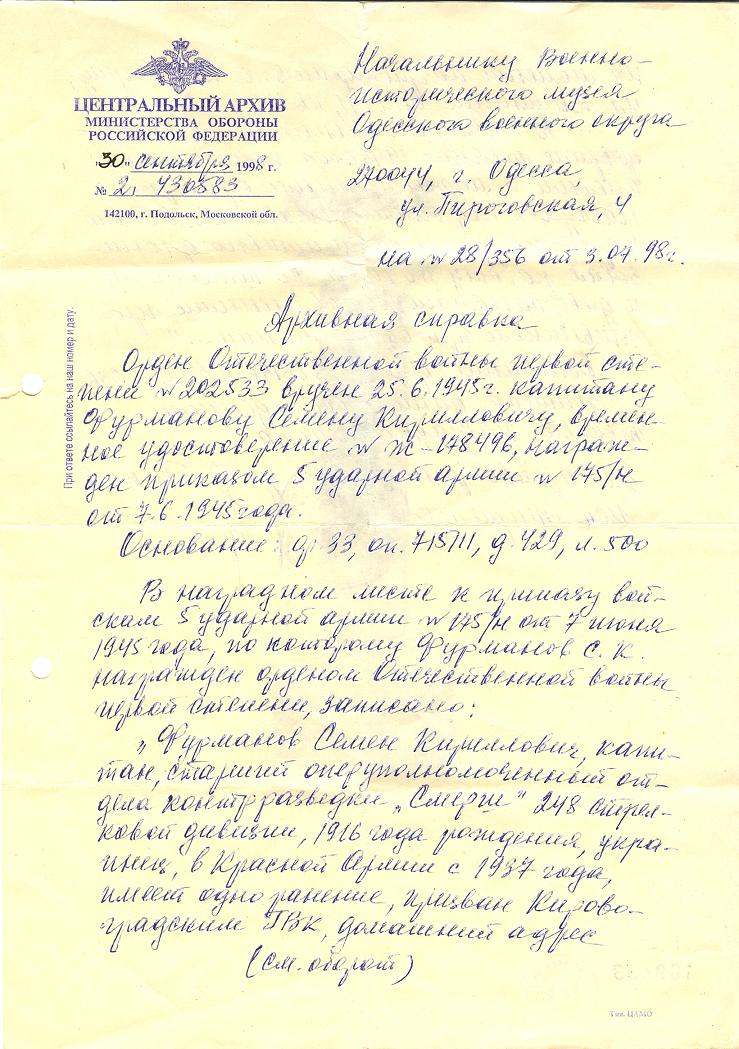 ЦЕНТРАЛЬНЫЙ АРХИВ
МИНИСТЕРСТВА ОБОРОНЫ
РОССИЙСКОЙ ФЕДЕРАЦИИ
"30" сентября 1998 г.
№ 2/430583
142100, г. Подольск, Московской обл.
Начальнику Военно-
исторического музея
Одесского военного округа
270044, г. Одесса,
ул. Пироговская, 4
на № 28/356 от 3.07.98г.
При ответе ссылайтесь на наш номер и дату.
Архивная справка
Орден Отечественной войны первой сте-
пени № 202533 вручен 25.6.1945г. капитану
Фурманову Семену Кирилловичу, времен-
ное удостоверение № Ж-178496, награж-
ден приказом 5 ударной армии № 175/н
от 7.6.1945 года.
Основание: ф. 33, оп. 715111, д. 429, л. 500
В наградном листе к приказу вой-
скам 5 ударной армии № 175/н от 7 июня
1945 года, по которому Фурманов С. К.
награжден орденом Отечественной войны
первой степени, записано:
„Фурманов Семен Кириллович, капи-
тан, старший оперуполномоченный от-
дела контрразведки „Смерш" 248 стрел-
ковой дивизии, 1916 года рождения, укра-
инец, в Красной Армии с 1937 года,
имеет одно ранение, призван Кирово-
градским ГВК, домашний адрес
(см. оборот)
Тип. ЦАМО